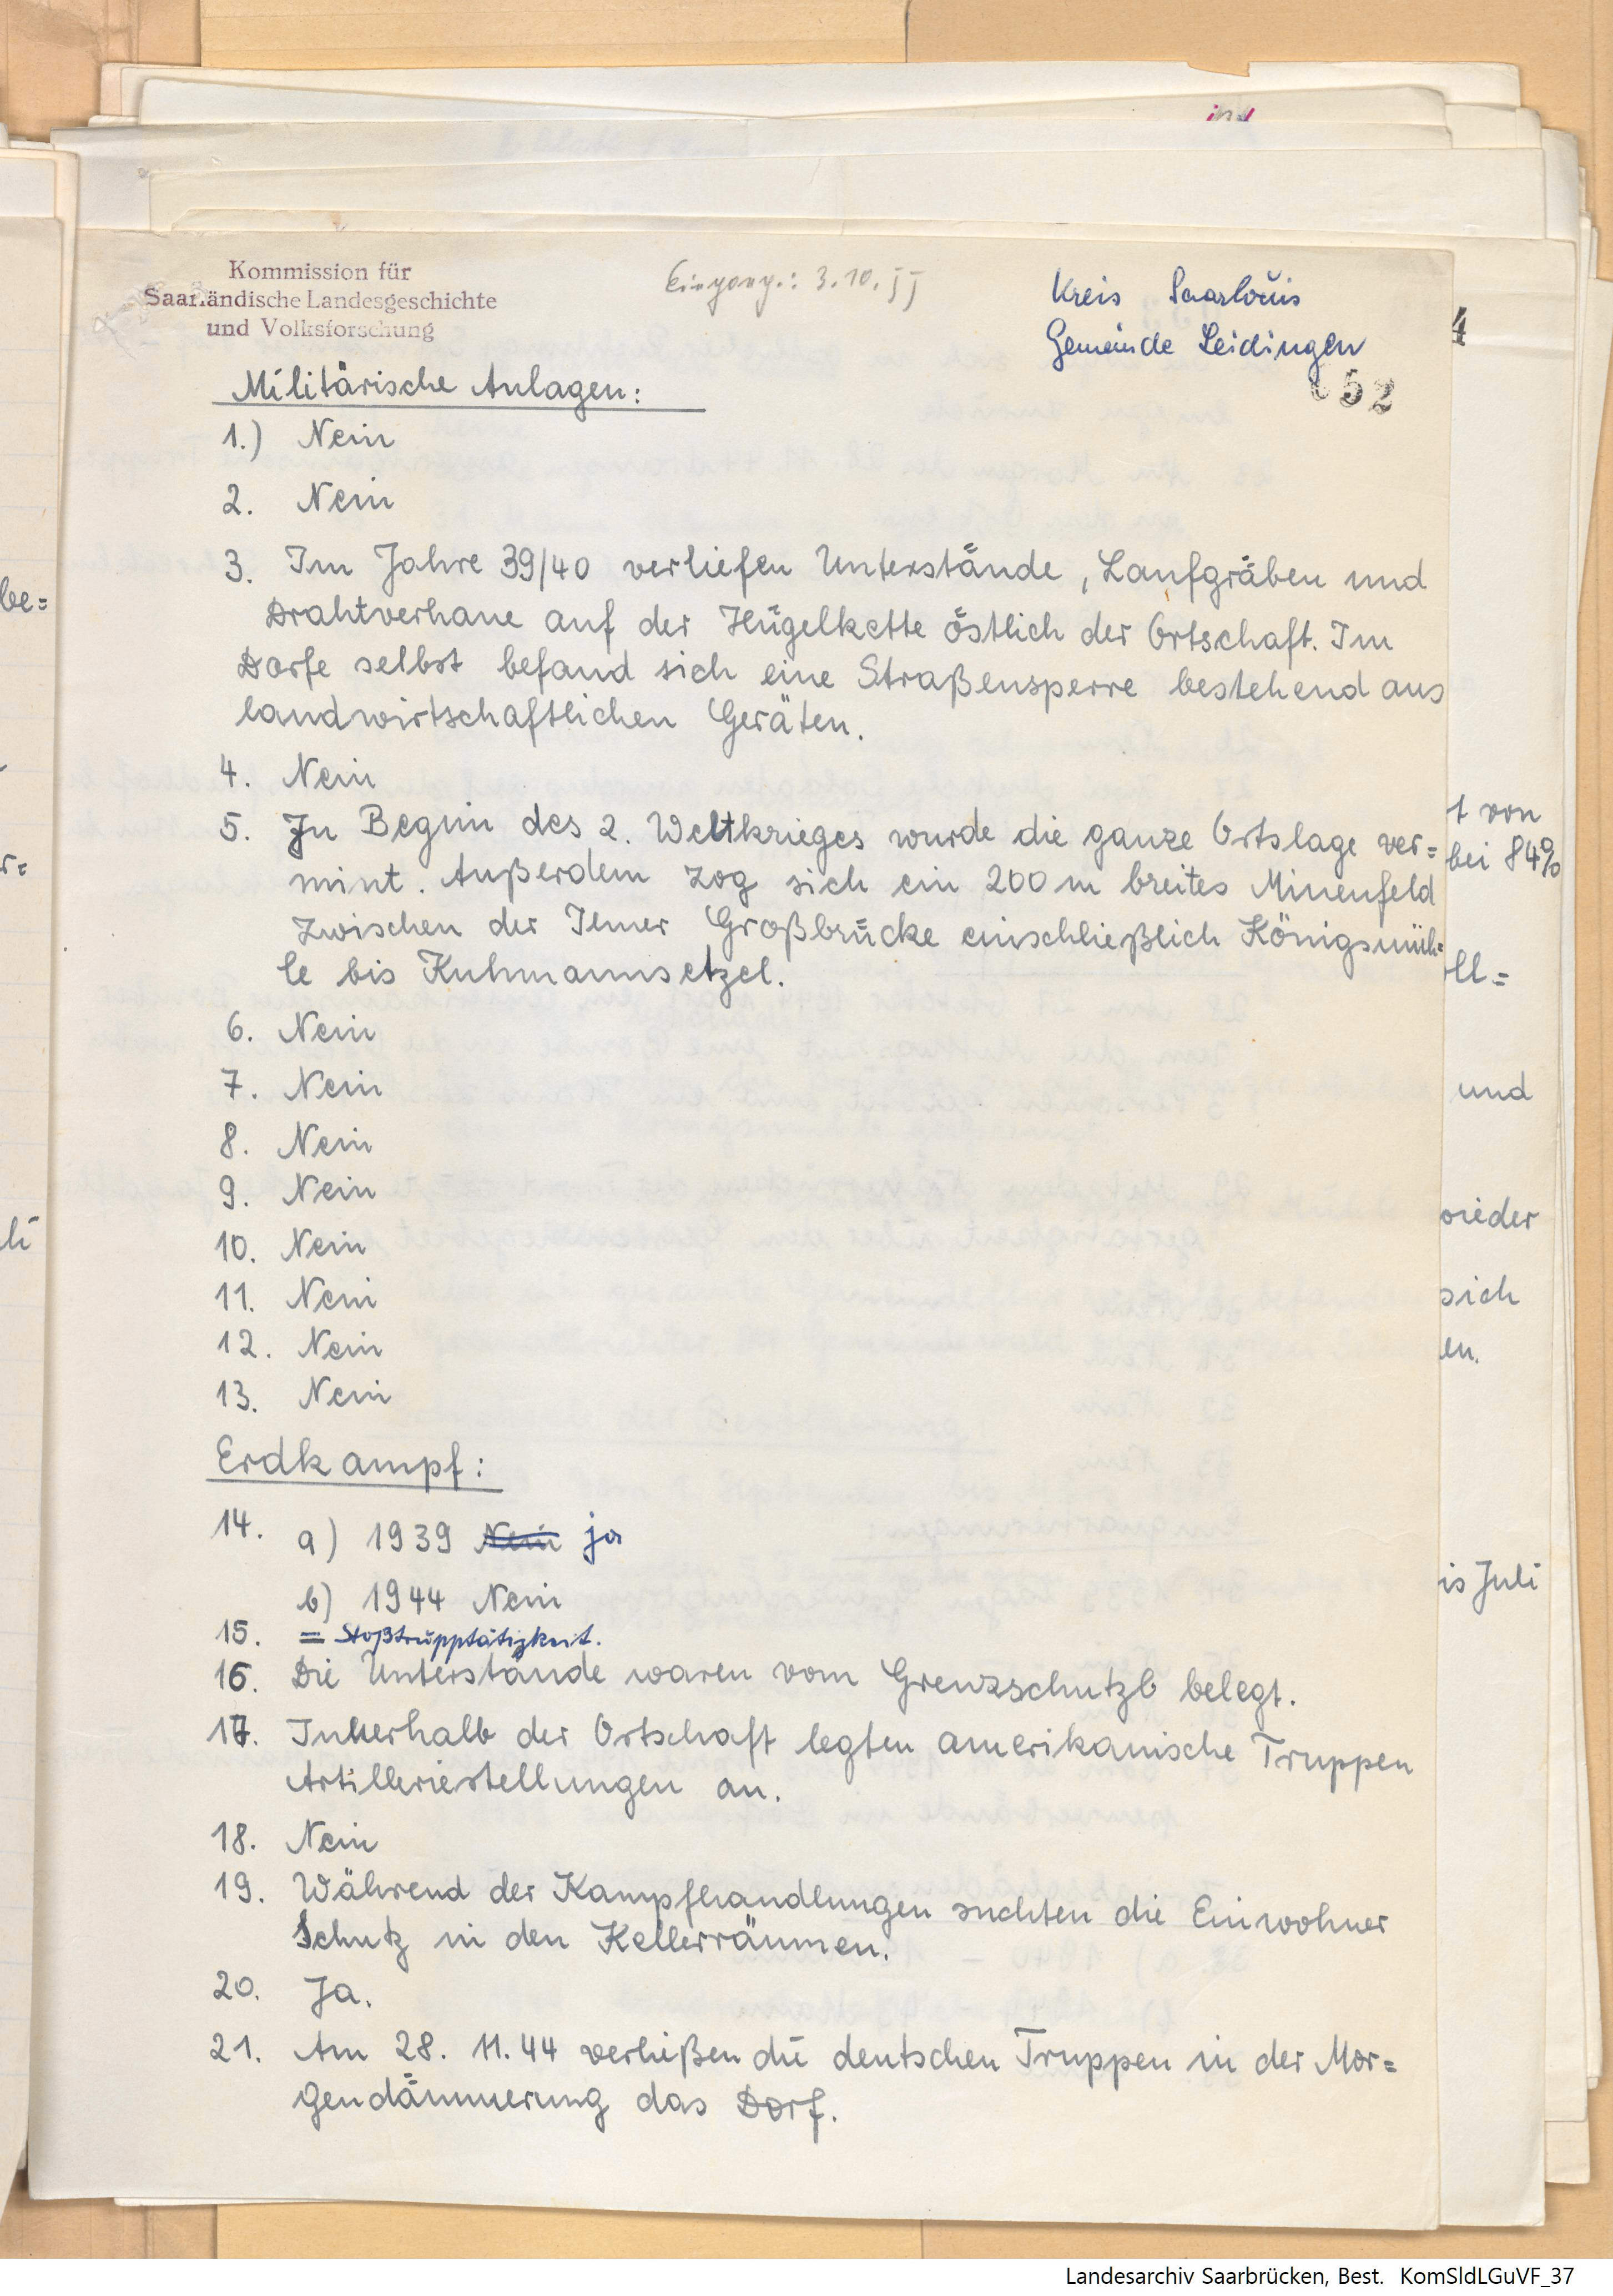 Kommission für
Saarländische Landesgeschichte
und Volksforschung
Eingang.: 3.10.55
Kreis Saarlouis
Gemeinde Leidingen
52
Militärische Anlagen:
1.) Nein
2. Nein
3. Im Jahre 39/40 verliefen Unterstände, Laufgräben und
Drahtverhaue auf der Hügelkette östlich der Ortschaft. Im
Dorfe selbst befand sich eine Straßensperre bestehend aus
landwirtschaftlichen Geräten.
4. Nein
5. Zu Beginn des 2. Weltkrieges wurde die ganze Ortslage ver=
mint. Außerdem zog sich ein 200 m breites Minenfeld
zwischen der Großbrücke einschließlich Königsmüh=
le bis
6. Nein
7. Nein
8. Nein
9. Nein
10. Nein
11. Nein
12. Nein
13. Nein
Erdkampf:
14. a) 1939 Nein ja
b) 1944 Nein
15. = Stoßtrupptätigkeit.
16. Die Unterstände waren vom Grenzschutz belegt.
17. Innerhalb der Ortschaft legten amerikanische Truppen
Artilleriestellungen an.
18. Nein
19. Während der Kampfhandlungen suchten die Einwohner
Schutz in den Kellerräumen.
20. Ja.
21. Am 28. 11. 44 verließen die deutschen Truppen in der Mor=
gendämmerung das Dorf.
be=
r=
4
t von
bei 84%
oll=
und
wieder
sich
en.
is Juli
Landesarchiv Saarbrücken, Best. KomSldLGuVF_37